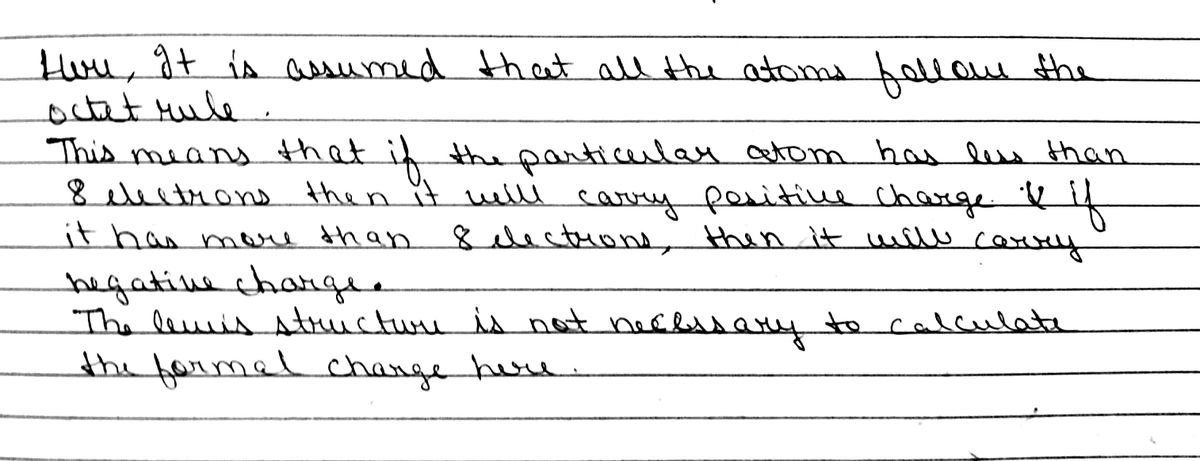 Here, It is assumed that all the atoms follow the
octet rule.
This means that if the particular atom has less than
8 electrons then it will carry positive charge & if
it has more than 8 electrons, then it will carry
negative charge.
The lewis structure is not necessary to calculate
the formal charge here.